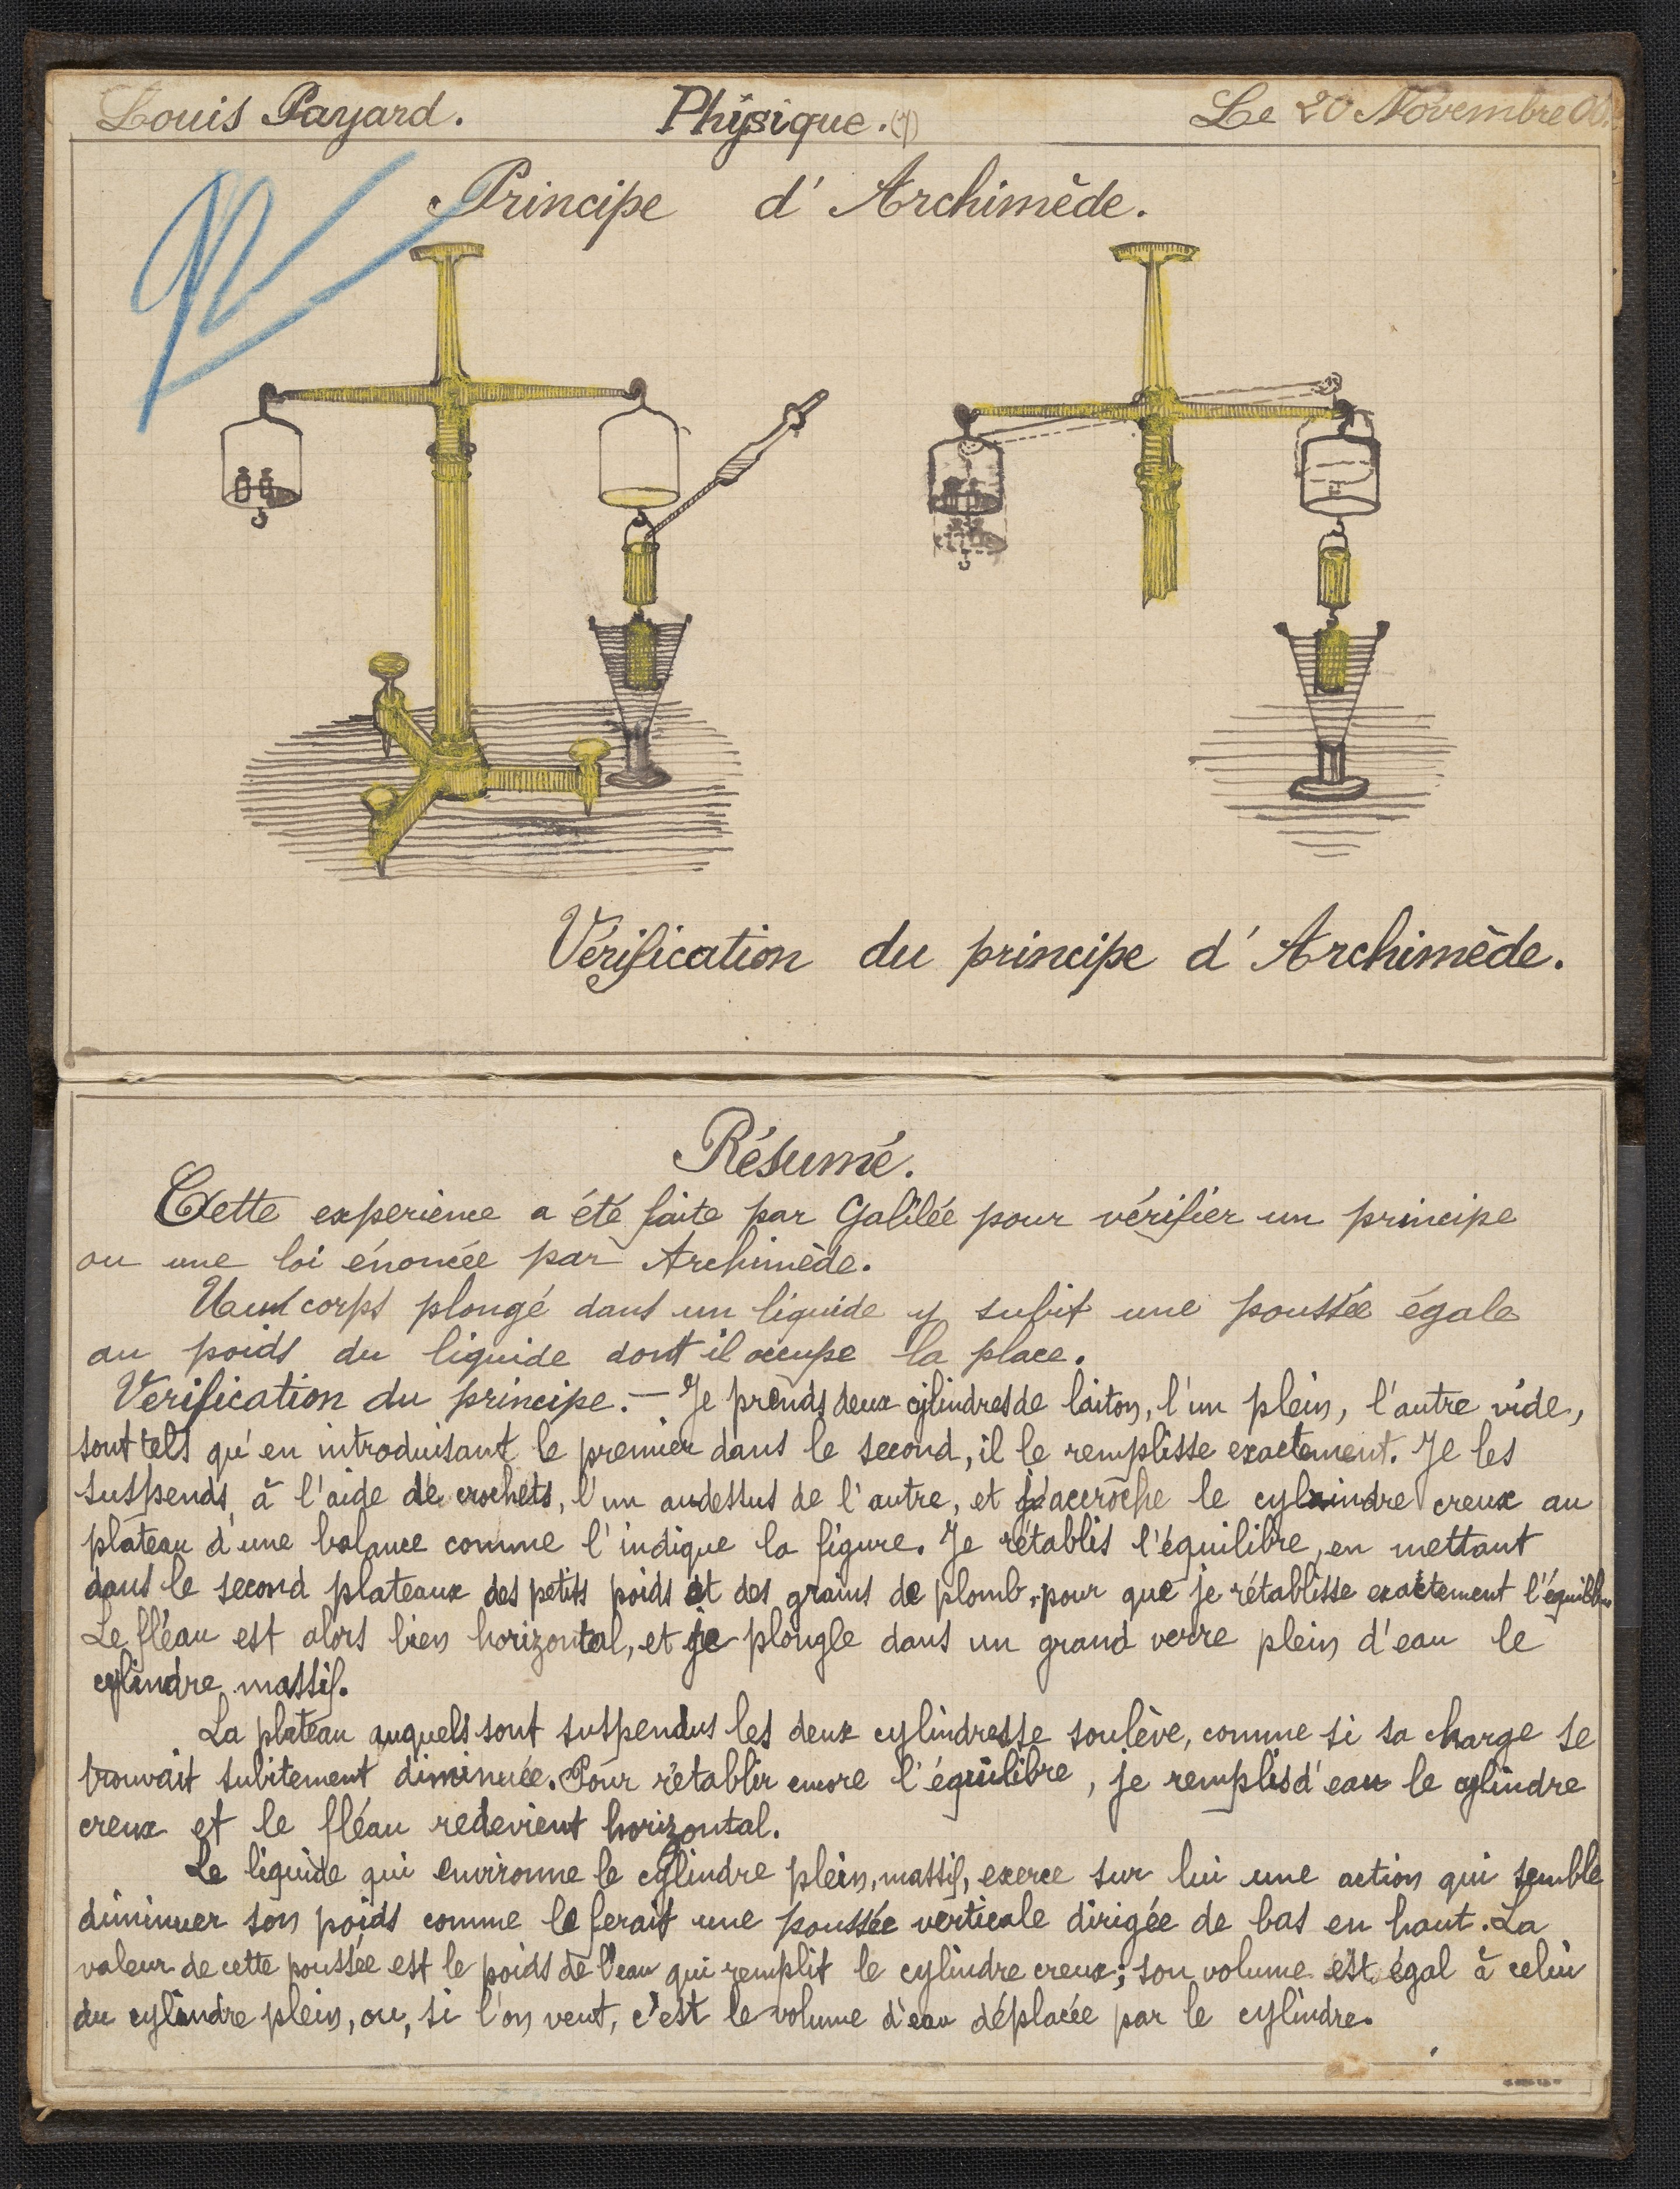 Louis Payard. Physique. Le 20 Novembre
Principe d'Archimède.
Vérification du principe d'Archimède.
Résumé.
Cette experience a été faite par Galilée pour vérifier un principe
ou une loi énoncée par Archimède.
corps plongé dans un liquide y subit une poussée égale
au poids du liquide dont il occupe la place.
Verification du principe. — Je prends deux cylindres de laiton, l'un plein, l'autre vide,
sont tels qu'en introduisant le premier dans le second, il le remplisse exactement. Je les
suspends, à l'aide de crochets, l'un audessus de l'autre, et j'accroche le cylindre creux au
plateau d'une balance comme l'indique la figure. Je rétablis l'équilibre, en mettant
dans le second plateaux des petits poids et des grains de plomb, pour que je rétablisse exactement
Le fléau est alors bien horizontal, et je plongle dans un grand verre plein d'eau le
cylindre massif.
La plateau auquels sont suspendus les deux cylindres se soulève, comme si sa charge se
trouvait subitement diminuée. Pour rétablir encore l'équilibre, je remplis d'eau le cylindre
creux et le fléau redevient horizontal.
Le liquide qui environne le cylindre plein, massif, exerce sur lui une action qui semble
diminuer son poids comme le ferait une poussée verticale dirigée de bas en haut. La
valeur de cette poussée est le poids de l'eau qui remplit le cylindre creux; son volume est égal à celui
du cylindre plein, ou, si l'on veut, c'est le volume d'eau déplacée par le cylindre.